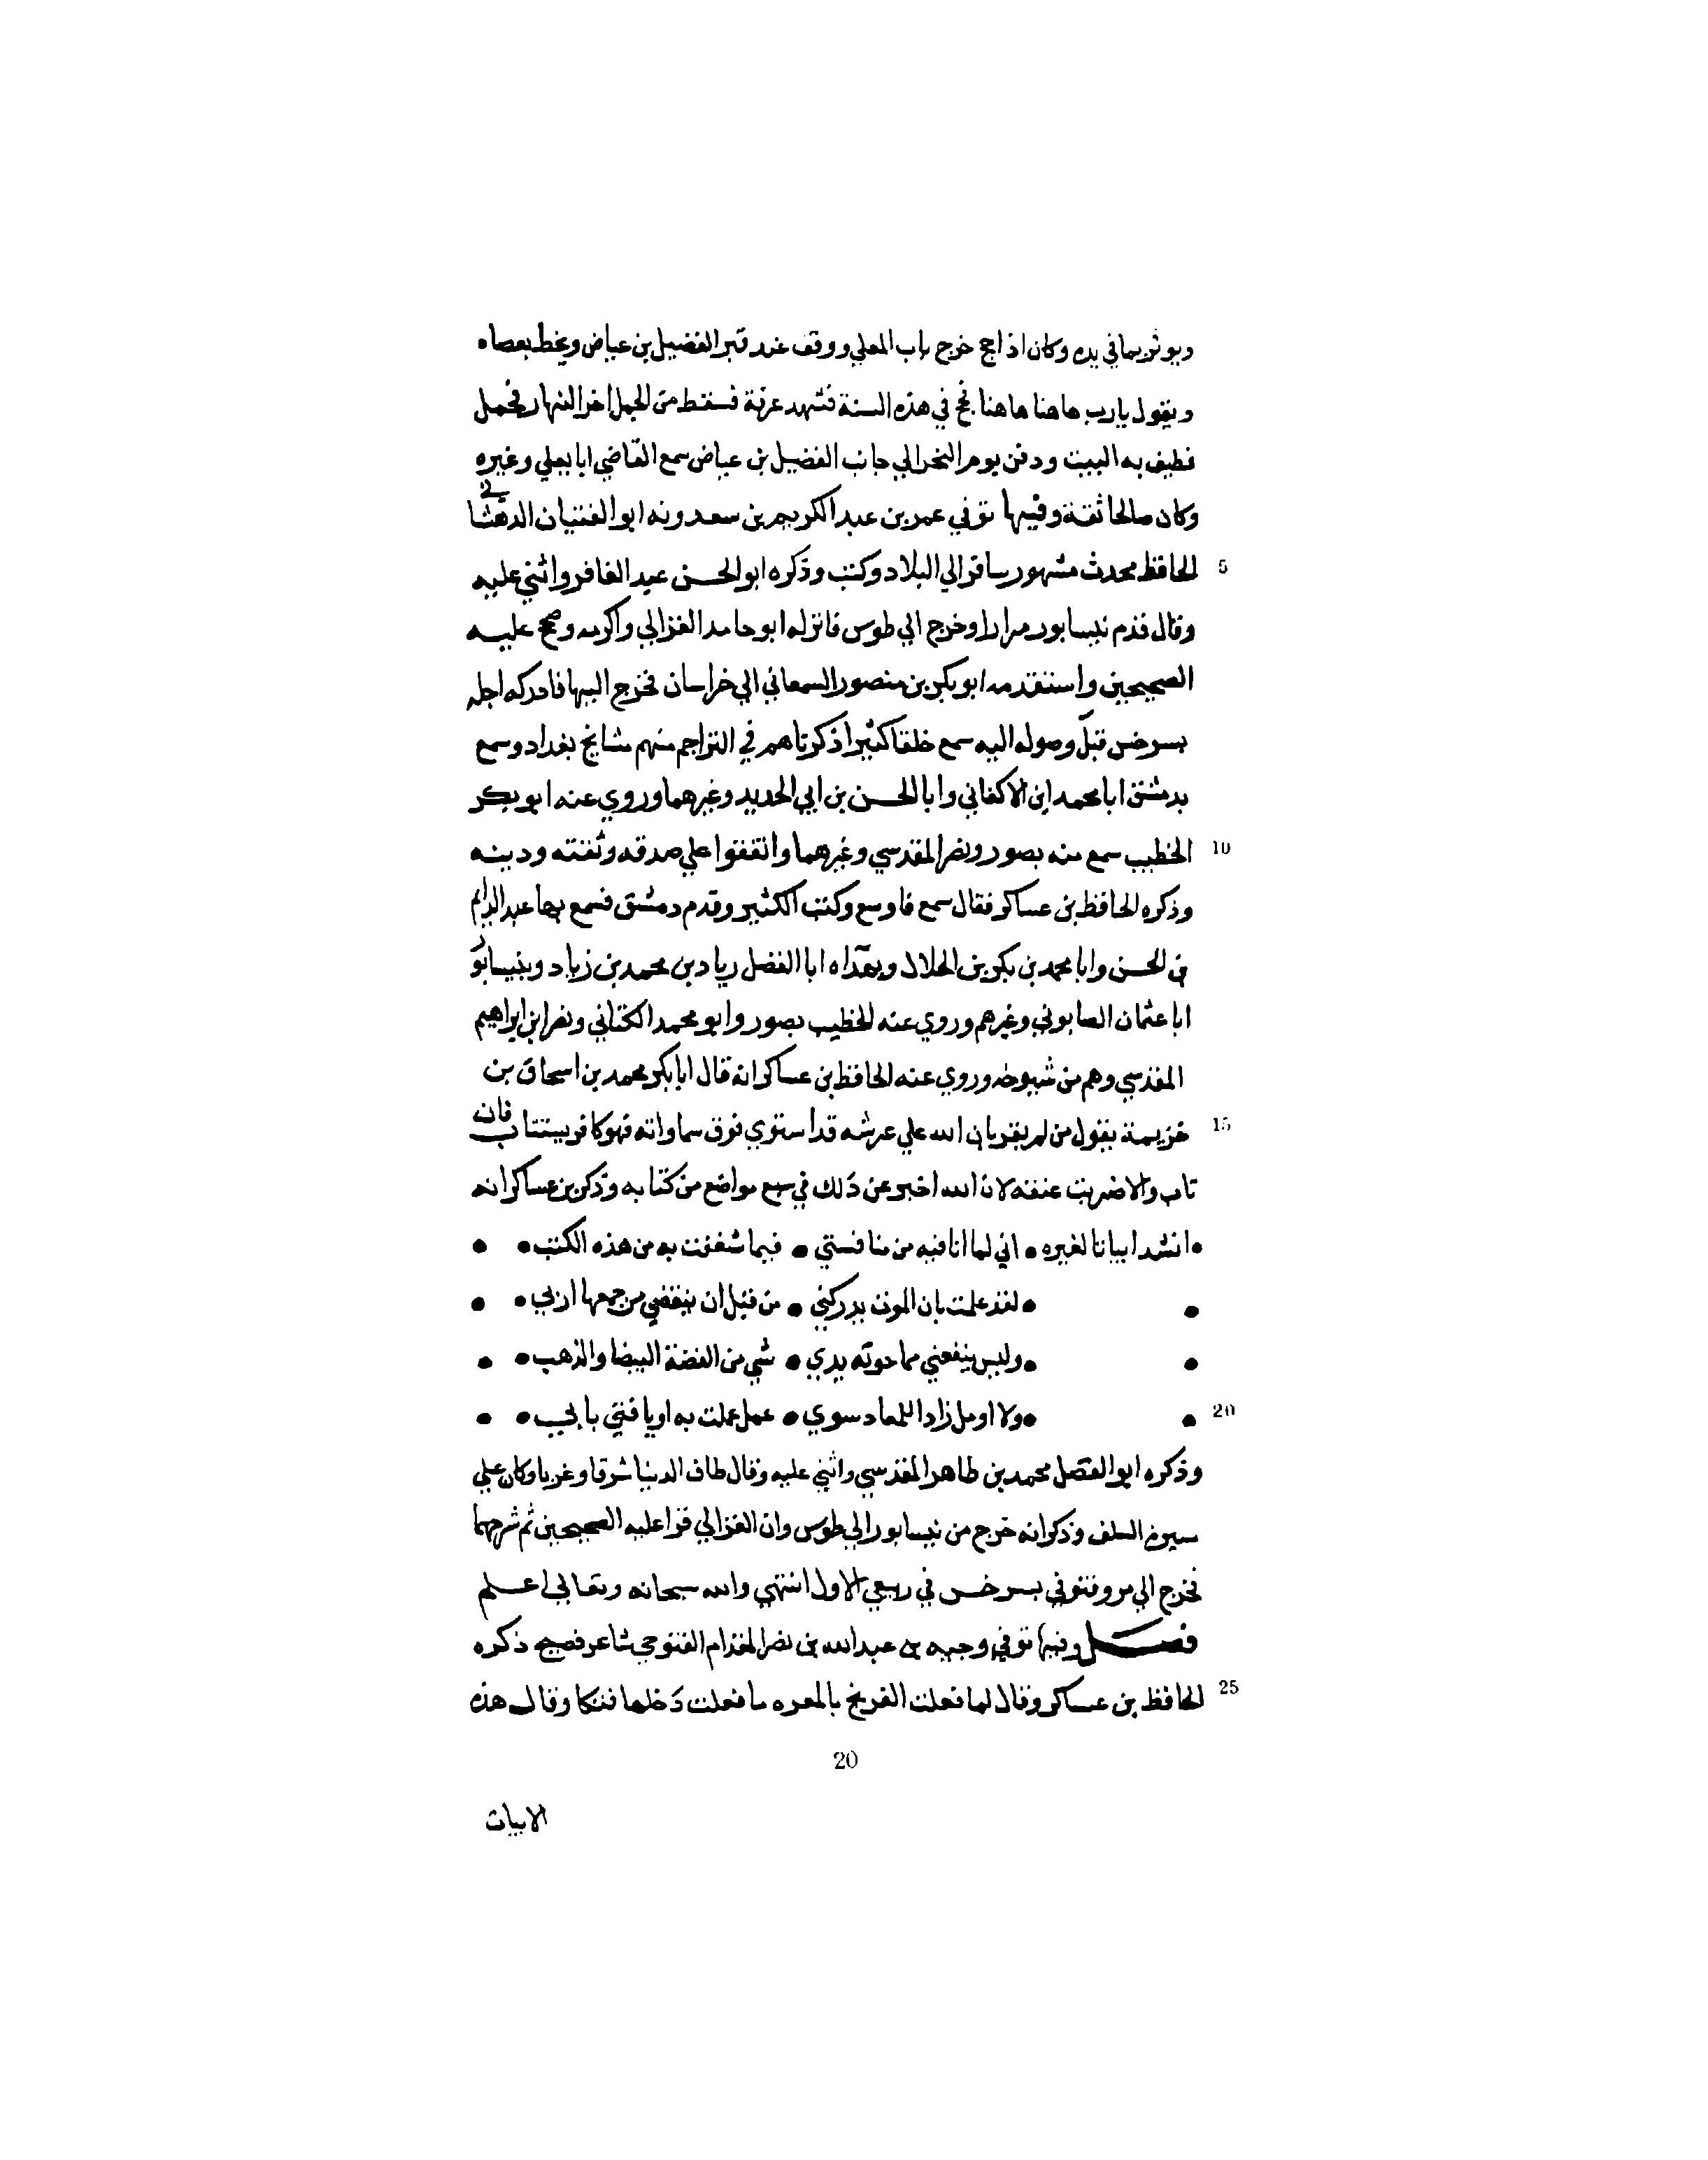 ويوثر بما في يده وكان اذا حج خرج باب المعلي ووقف عند قبر الفضيل بن عياض ويخط بعصاه
ويقول يارب هاهنا هاهنا فحج في هذه السنة فشهد عرفة فسقط من الجمل اخر النهار فحمل
فطيف به البيت ودفن يوم النحر الي جانب الفضيل بن عياض سمع القاضي ابا يعلي وغيره
وكان صالحا ثقة وفيها توفي عمر بن عبد الكريم بن سعدونه ابو الفتيان الدهشاني
5 الحافظ محدث مشهور سافر الي البلاد وكتب وذكره ابو الحسن عبد الغافر واثني عليه
وقال قدم نيسابور مرارا وخرج الي طوس فانزله ابو حامد الغزالي واكرمه وصحح عليه
الصحيحين واستقدمه ابو بكر بن منصور السمعاني الي خراسان فخرج اليها فادركه اجله
بسرخس قبل وصوله اليه سمع خلقا كثيرا ذكرناهم في التراجم منهم مشايخ بغداد وسمع
بدمشق ابا محمد ابن الاكفاني وابا الحسن بن ابي الحديد وغيرهما وروي عنه ابو بكر
10 الخطيب سمع منه بصور ونصر المقدسي وغيرهما واتفقوا علي صدقه وثقته ودينه
وذكره الحافظ بن عساكر فقال سمع فاوسع وكتب الكثير وقدم دمشق فسمع بها عبد الدايم
بن الحسن وابا محمد بن بكر بن الحلال وبغداه ابا الفضل زياد بن محمد بن زياد وبنيسابور
ابا عثمان الصابوني وغيرهم وروي عنه الخطيب بصور وابو محمد الكتاني ونصر ابن ابراهيم
المقدسي وهم من شيوخه وروي عنه الحافظ بن عساكر انه قال ابا بكر محمد بن اسحاق بن
15 خزيمة يقول من لم يقر بان الله علي عرشه قد استوي فوق سماواته فهو كافر يستتاب فان
تاب والا ضربت عنقه لان الله اخبر عن ذلك في سبع مواضع من كتابه وذكر بن عساكر انه
• انشد ابياتا لغيره • اني لما انا فيه من منافستي • فيما شغفت به من هذه الكتب • •
• • لقد علمت بان الموت يدركني • من قبل ان ينقضي من جمعها اربي • •
• • وليس ينفعني مما حوته يدي • شي من الفضة البيضا والذهب • •
20 • • ولا اومل زادا للمعاد سوي • عمل عملت به او يا فتي بابي • •
وذكره ابو الفضل محمد بن طاهر المقدسي واثني عليه وقال طاف الدنيا شرقا وغربا وكان علي
سيرة السلف وذكر انه خرج من نيسابور الي طوس وان الغزالي قرا عليه الصحيحين ثم شرحهما
فخرج الي مرو فتوفي بسرخس في ربيع الاول انتهي والله سبحانه وتعالي اعلم
فصل وفيها توفي وجيه بن عبد الله بن نصر المقدام التنوخي شاعر فصيح ذكره
25 الحافظ بن عساكر وقال لما فعلت الفرنج بالمعره ما فعلت دخلها فبكا وقال هذه
20
الابيات